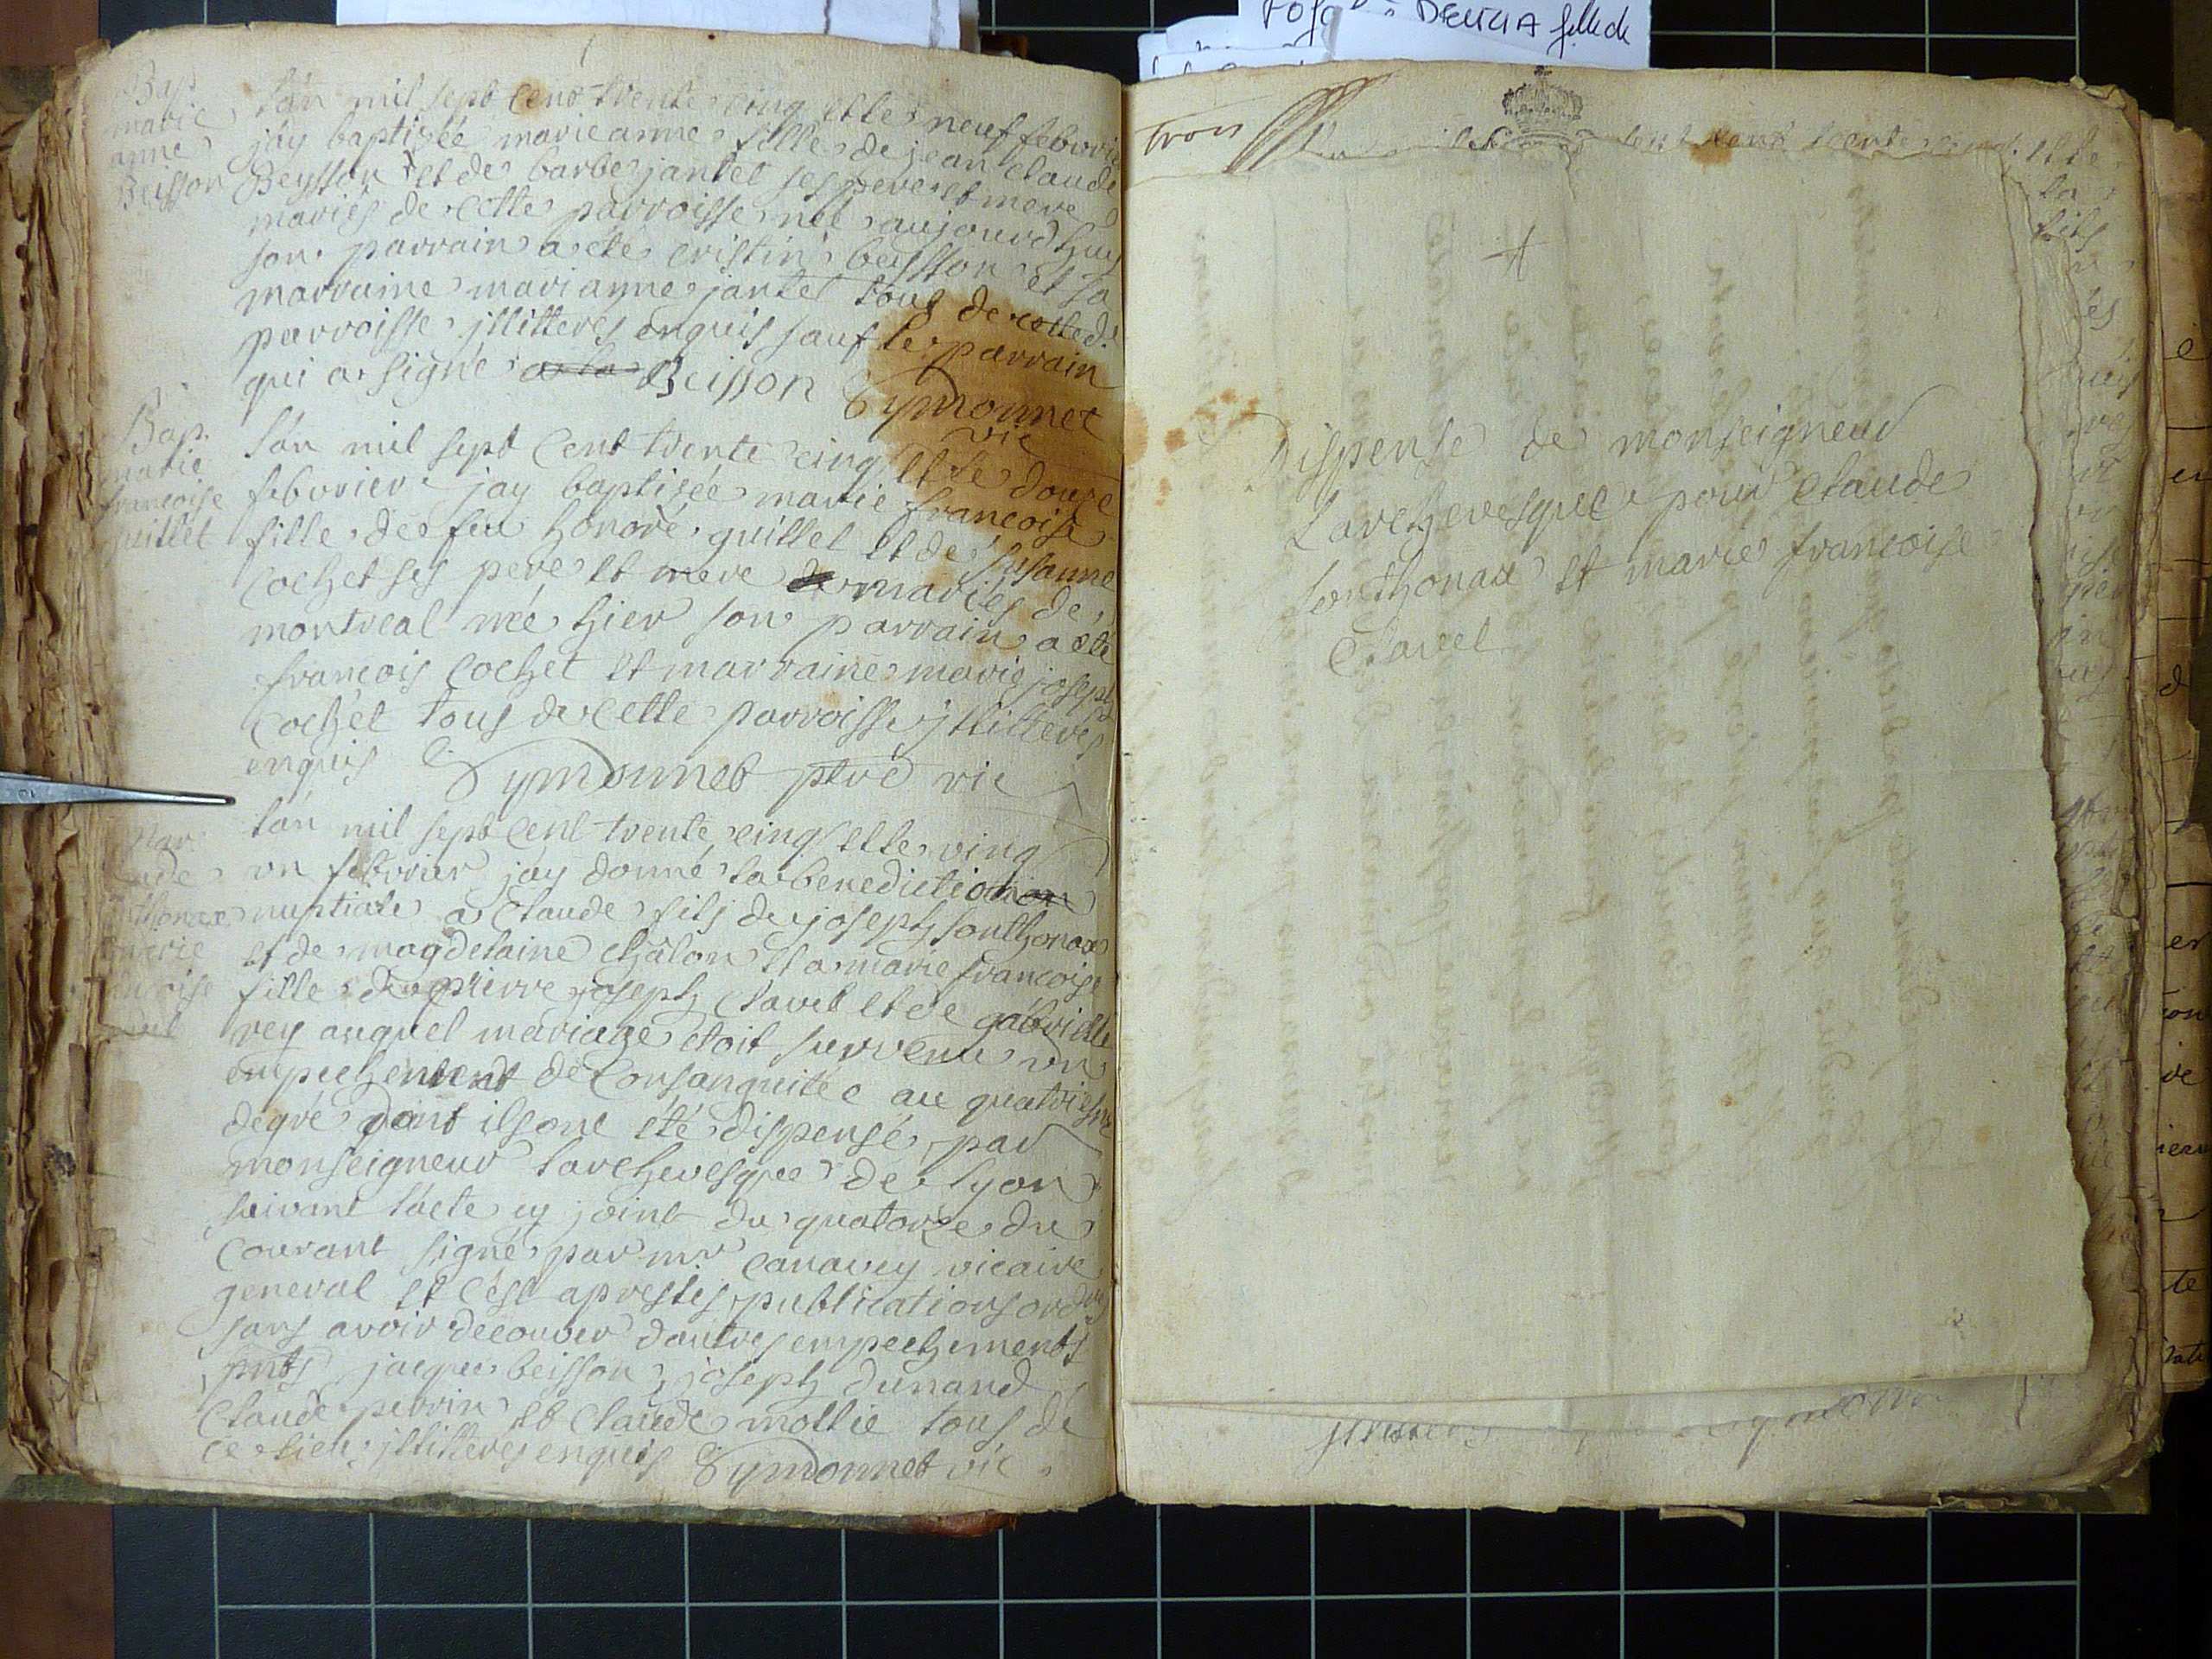 Bap.
marie
anne
Beisson
lán mil sept cent trente cinq et le neuf febvrie
jáy baptisée marie anne fille de jean claude
Beysson et de barbe jantet ses pere et mere
mariés de cette parroisse née aujourdhuy
son parrain a été cristin beysson et sa
marraine marianne jantet tous de cette d.
parroisse jllitteres enquis sauf le parrain
qui a signé Beisson Symonnet
vic
Bap.
marie
francoise
guillet
lán mil sept cent trente cinq et le douze
febvrier jay baptisée marie francoise
fille de feu honoré guillet et de susanne
Cochet ses pere et mere mariés de
montreal née hier son parrain a été
francois Cochet et marraine marie joseph
Cochet tous de cette parroisse jllitteres
enquis Symonnet ptre vic
Mar
ude
nthonax
marie
ncoise
lán mil sept cent trente cinq et le ving
un febvrier jáy donné la benediction
nuptiale a Claude fils de joseph sonthonax
et de magdelaine châlon et a marie francoise
fille de pierre joseph Clavel et de gabrielle
rey auquel mariage étoit survenu un
empechement de Consanguité e au quatriesme
degré dont ils ont été dispensé par
monseigneur larchevesque de Lyon
suivant lácte cy joint du quatorze du
Courant signé par mr. Canavey vicaire
general et cést apres les publications ordres
sans avoir découver dautres empechements
pnts jacque beisson joseph dunand
Claude perrin et Claude mollie tous de
ce lieu jllitteres enquis Symonnet vic
DELILIA fille de
trois
Dispense de monseigneur
Larchevesque pour Claude
sonthonax et marie francoise
Clavel